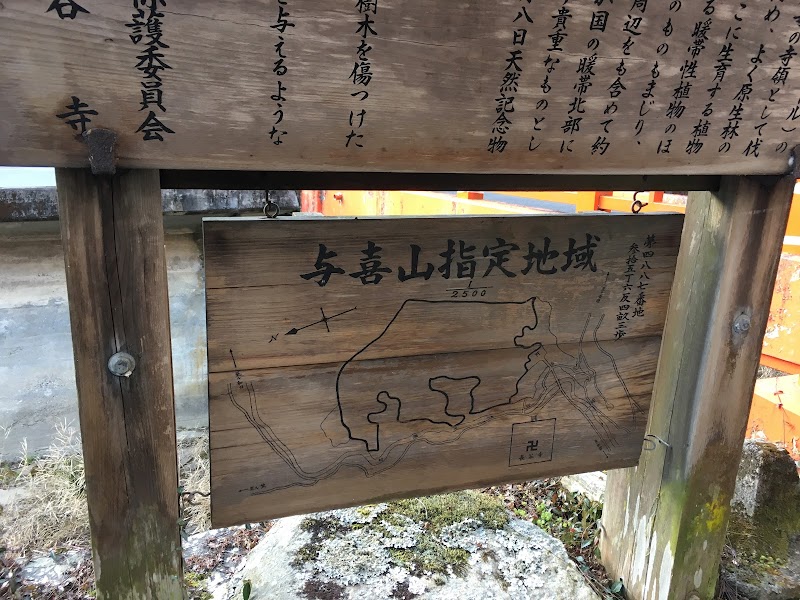 ル)の
の寺領として伐
め、よく原生林の
こに生育する植
る暖帯性植物
のものもまじり、
周辺をも含めて約
か国の暖帯北部に
貴重なものとし
八日天然記念物
樹木を傷つけた
を与えるような
保護委員会
谷寺
与喜山指定地域
1/2500
第四八八七番地
参拾五丁六反四畝三歩
N
卍